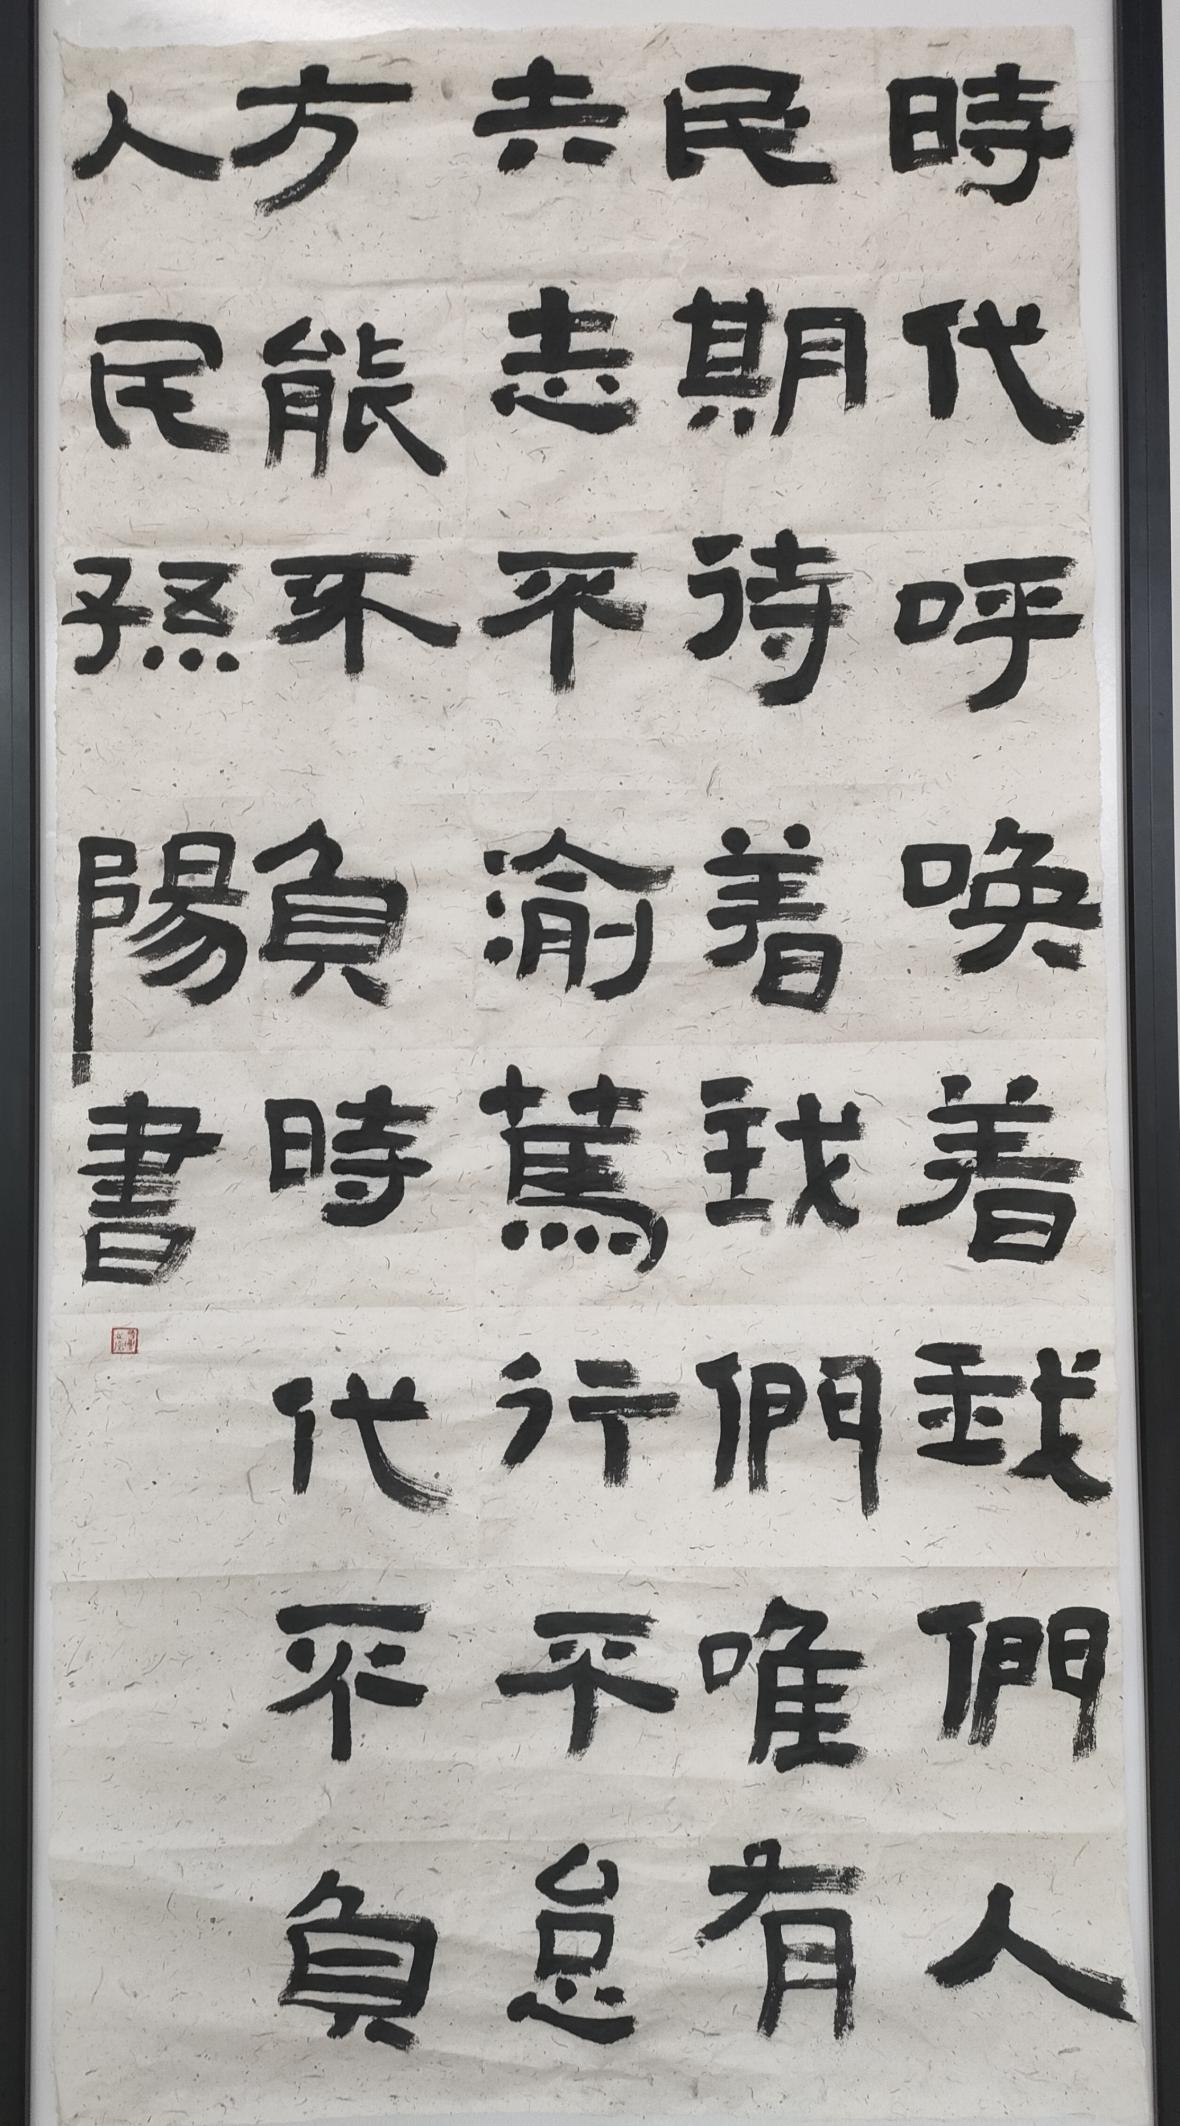 時代呼唤着我們人
民期待着我們唯有
矢志不渝篤行不怠
方能不負時代不負
人民孫陽書